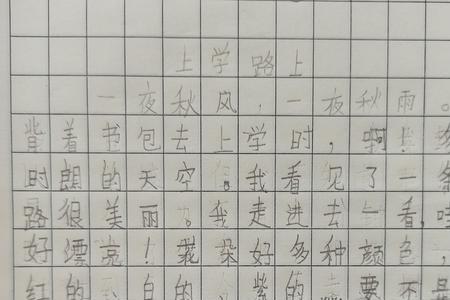 上学路上
一夜秋风，一夜秋雨。
背着书包去上学时，啊！
时朗的天空。我看见了一条
路很美丽。我走进去一看，哇
好漂亮！花朵好多种颜色，
红的 白的 紫的 要不是